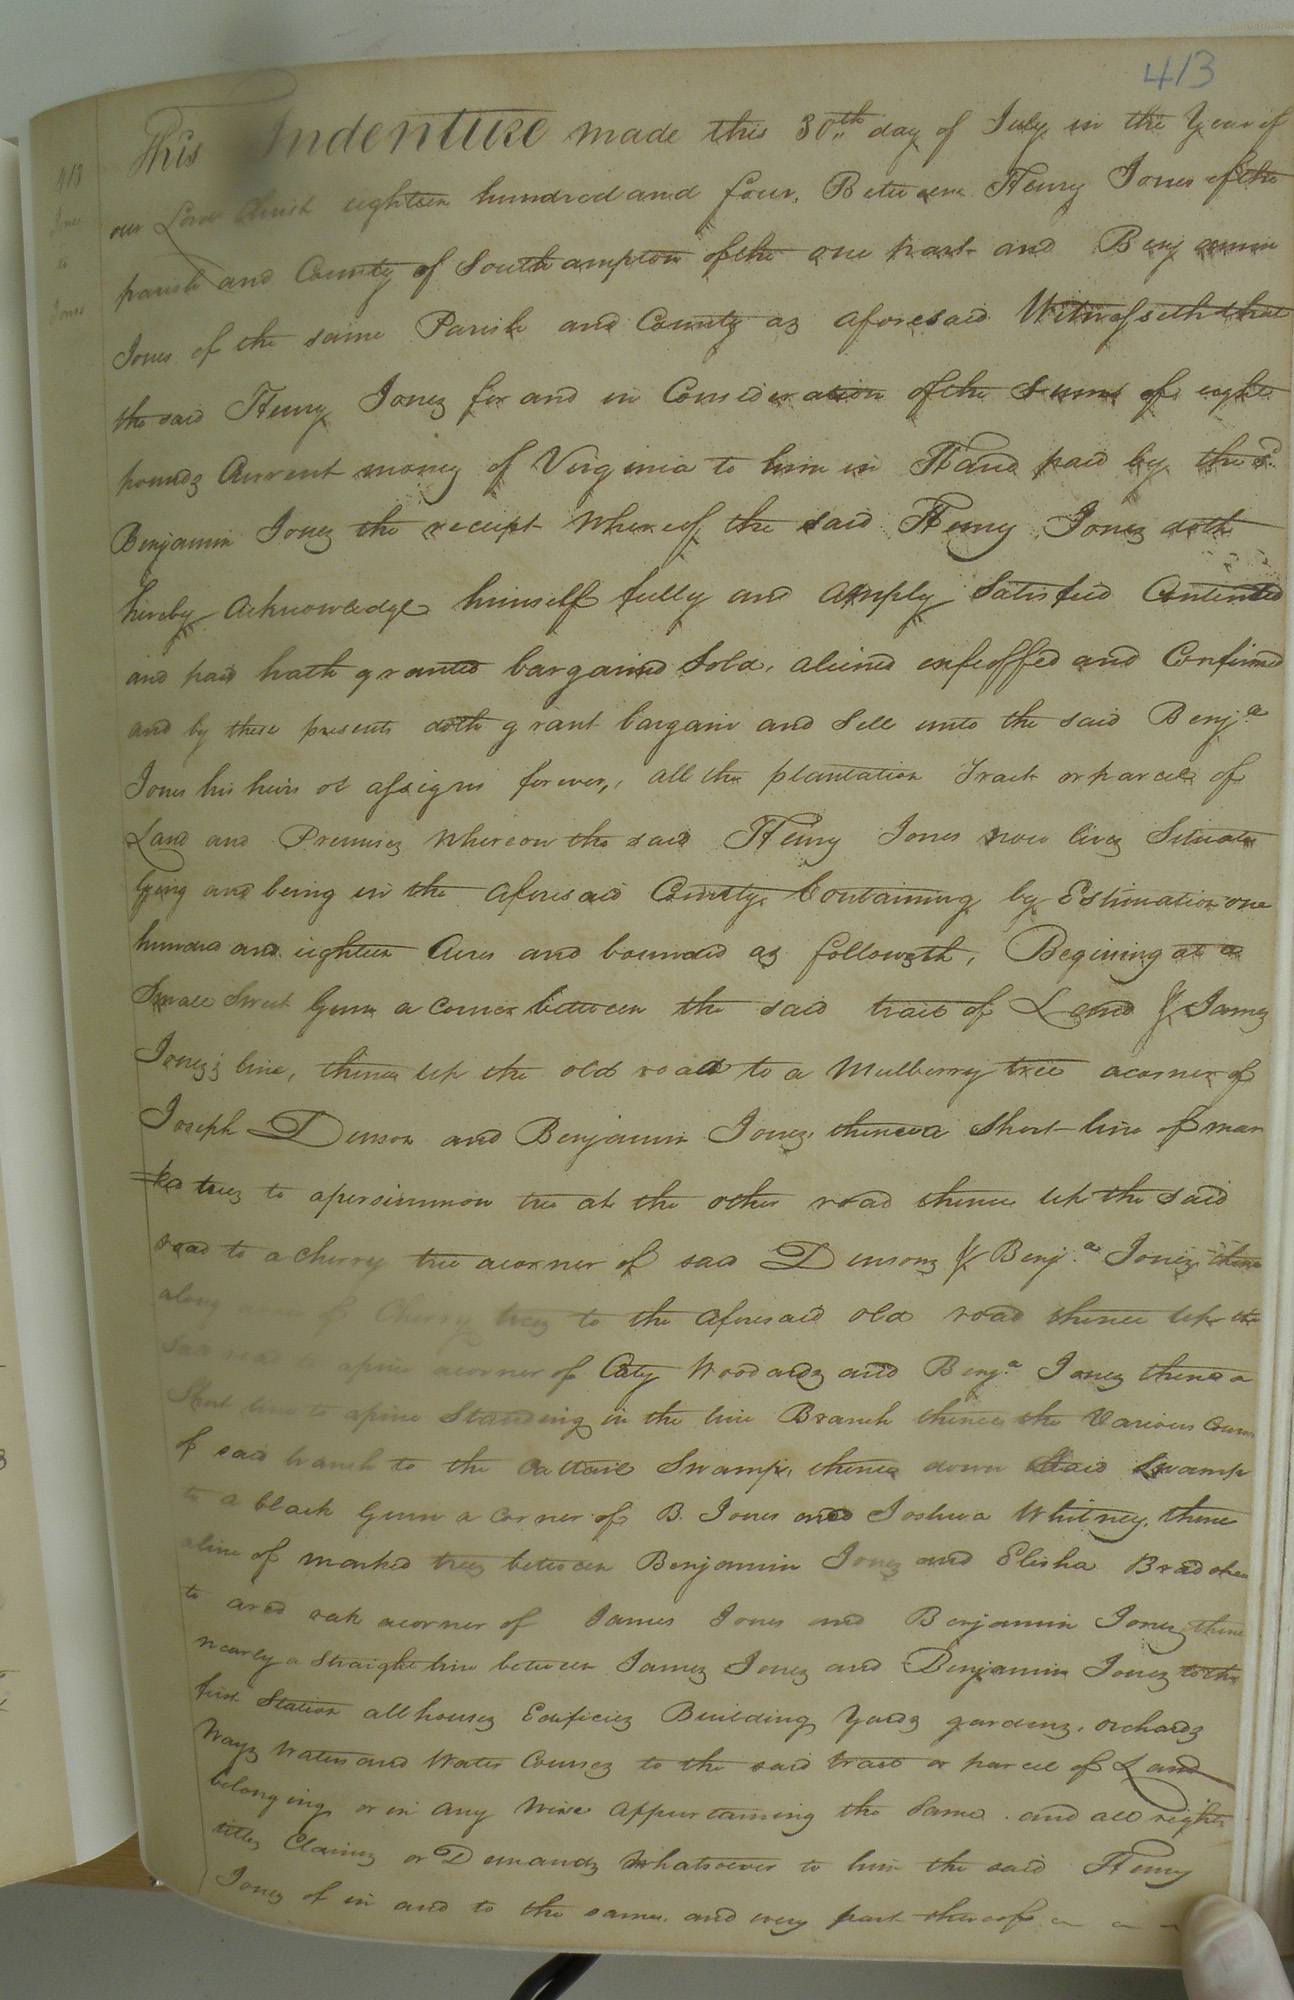 413
413
Jones
to
Jones
This Indenture made this 30th day of July in the Year of
our Lord Christ eighteen hundred and four, Between Henry Jones of the
parish and County of Southampton of the one part and Benjamin
Jones of the same Parish and County as aforesaid Witnesseth that
the said Henry Jones for and in Consideration of the Sums of eight
pounds Current money of Virginia to him in Hand paid by the sd
Benjamin Jones the receipt whereof the said Henry Jones doth
hereby Acknowledge himself fully and Amply Satisfied Contented
and paid hath granted bargained Sold, aliened enfeoffed and Confirmed
and by these presents doth grant bargain and Sell unto the said Benja
Jones his heirs or assigns forever, all the plantation Tract or parcel of
Land and Premises whereon the said Henry Jones now lives Situate
lying and being in the aforesaid County Containing by Estimation one
hundred and eighteen Acres and bounded as followeth, Begining at a
Small Sweet Gum a corner between the said tract of Land & James
Jones's line, thence up the old road to a Mulberry tree a corner of
Joseph Denson and Benjamin Jones, thence a Short line of mar
=ked trees to a persimmon tree at the other road thence up the said
road to a cherry tree a corner of said Densons & Benja Jones thence
along a row of Cherry trees to the aforesaid old road thence up the
said road to a pine a corner of Caty Woodards and Benja Jones thence a
Short line to a pine Standing in the line Branch thence the Various Courses
of said branch to the Cattail Swamp, thence down Said Swamp
to a black Gum a corner of B. Jones and Joshua Whitney, thence
a line of marked trees between Benjamin Jones and Elisha Bradshaw
to a red oak a corner of James Jones and Benjamin Jones, thence
nearly a Straight line between James Jones and Benjamin Jones to the
first Station all houses Edificies Building Yards gardens, orchards
Ways Waters and Water Courses to the said tract or parcel of Land
belonging or in any wise appurtaining the Same and all rights
titles Claims or Demands Whatsoever to him the said Henry
Jones of in and to the same, and every part thereof